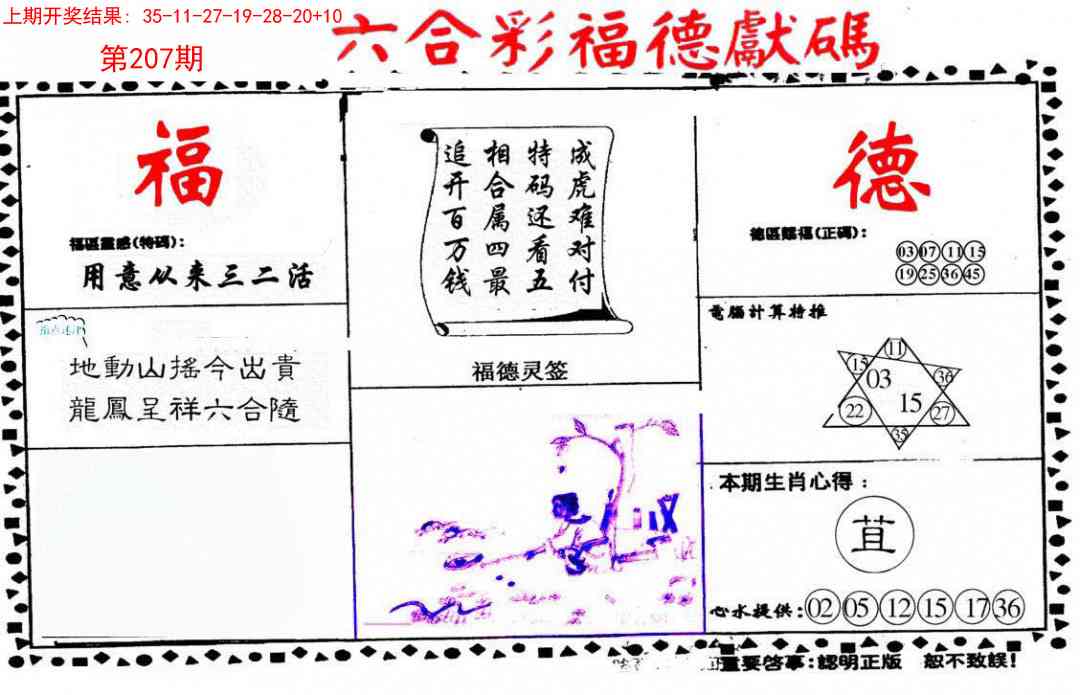 上期开奖结果: 35-11-27-19-28-20+10
第207期
六合彩福德獻碼
福
福區靈感(特碼):
用意从来三二活
地動山摇今出貴
龍鳳呈祥六合隨
成虎难对付
特码还看五
相合属四最
追开百万钱
福德灵签
德
(正碼):
03 07 11 15
19 25 36 45
電腦計算特推
11
15
36
03
15
22
27
35
本期生肖心得:
苴
心水提供: 02 05 12 15 17 36
重要启事:認明正版 恕不致誤!